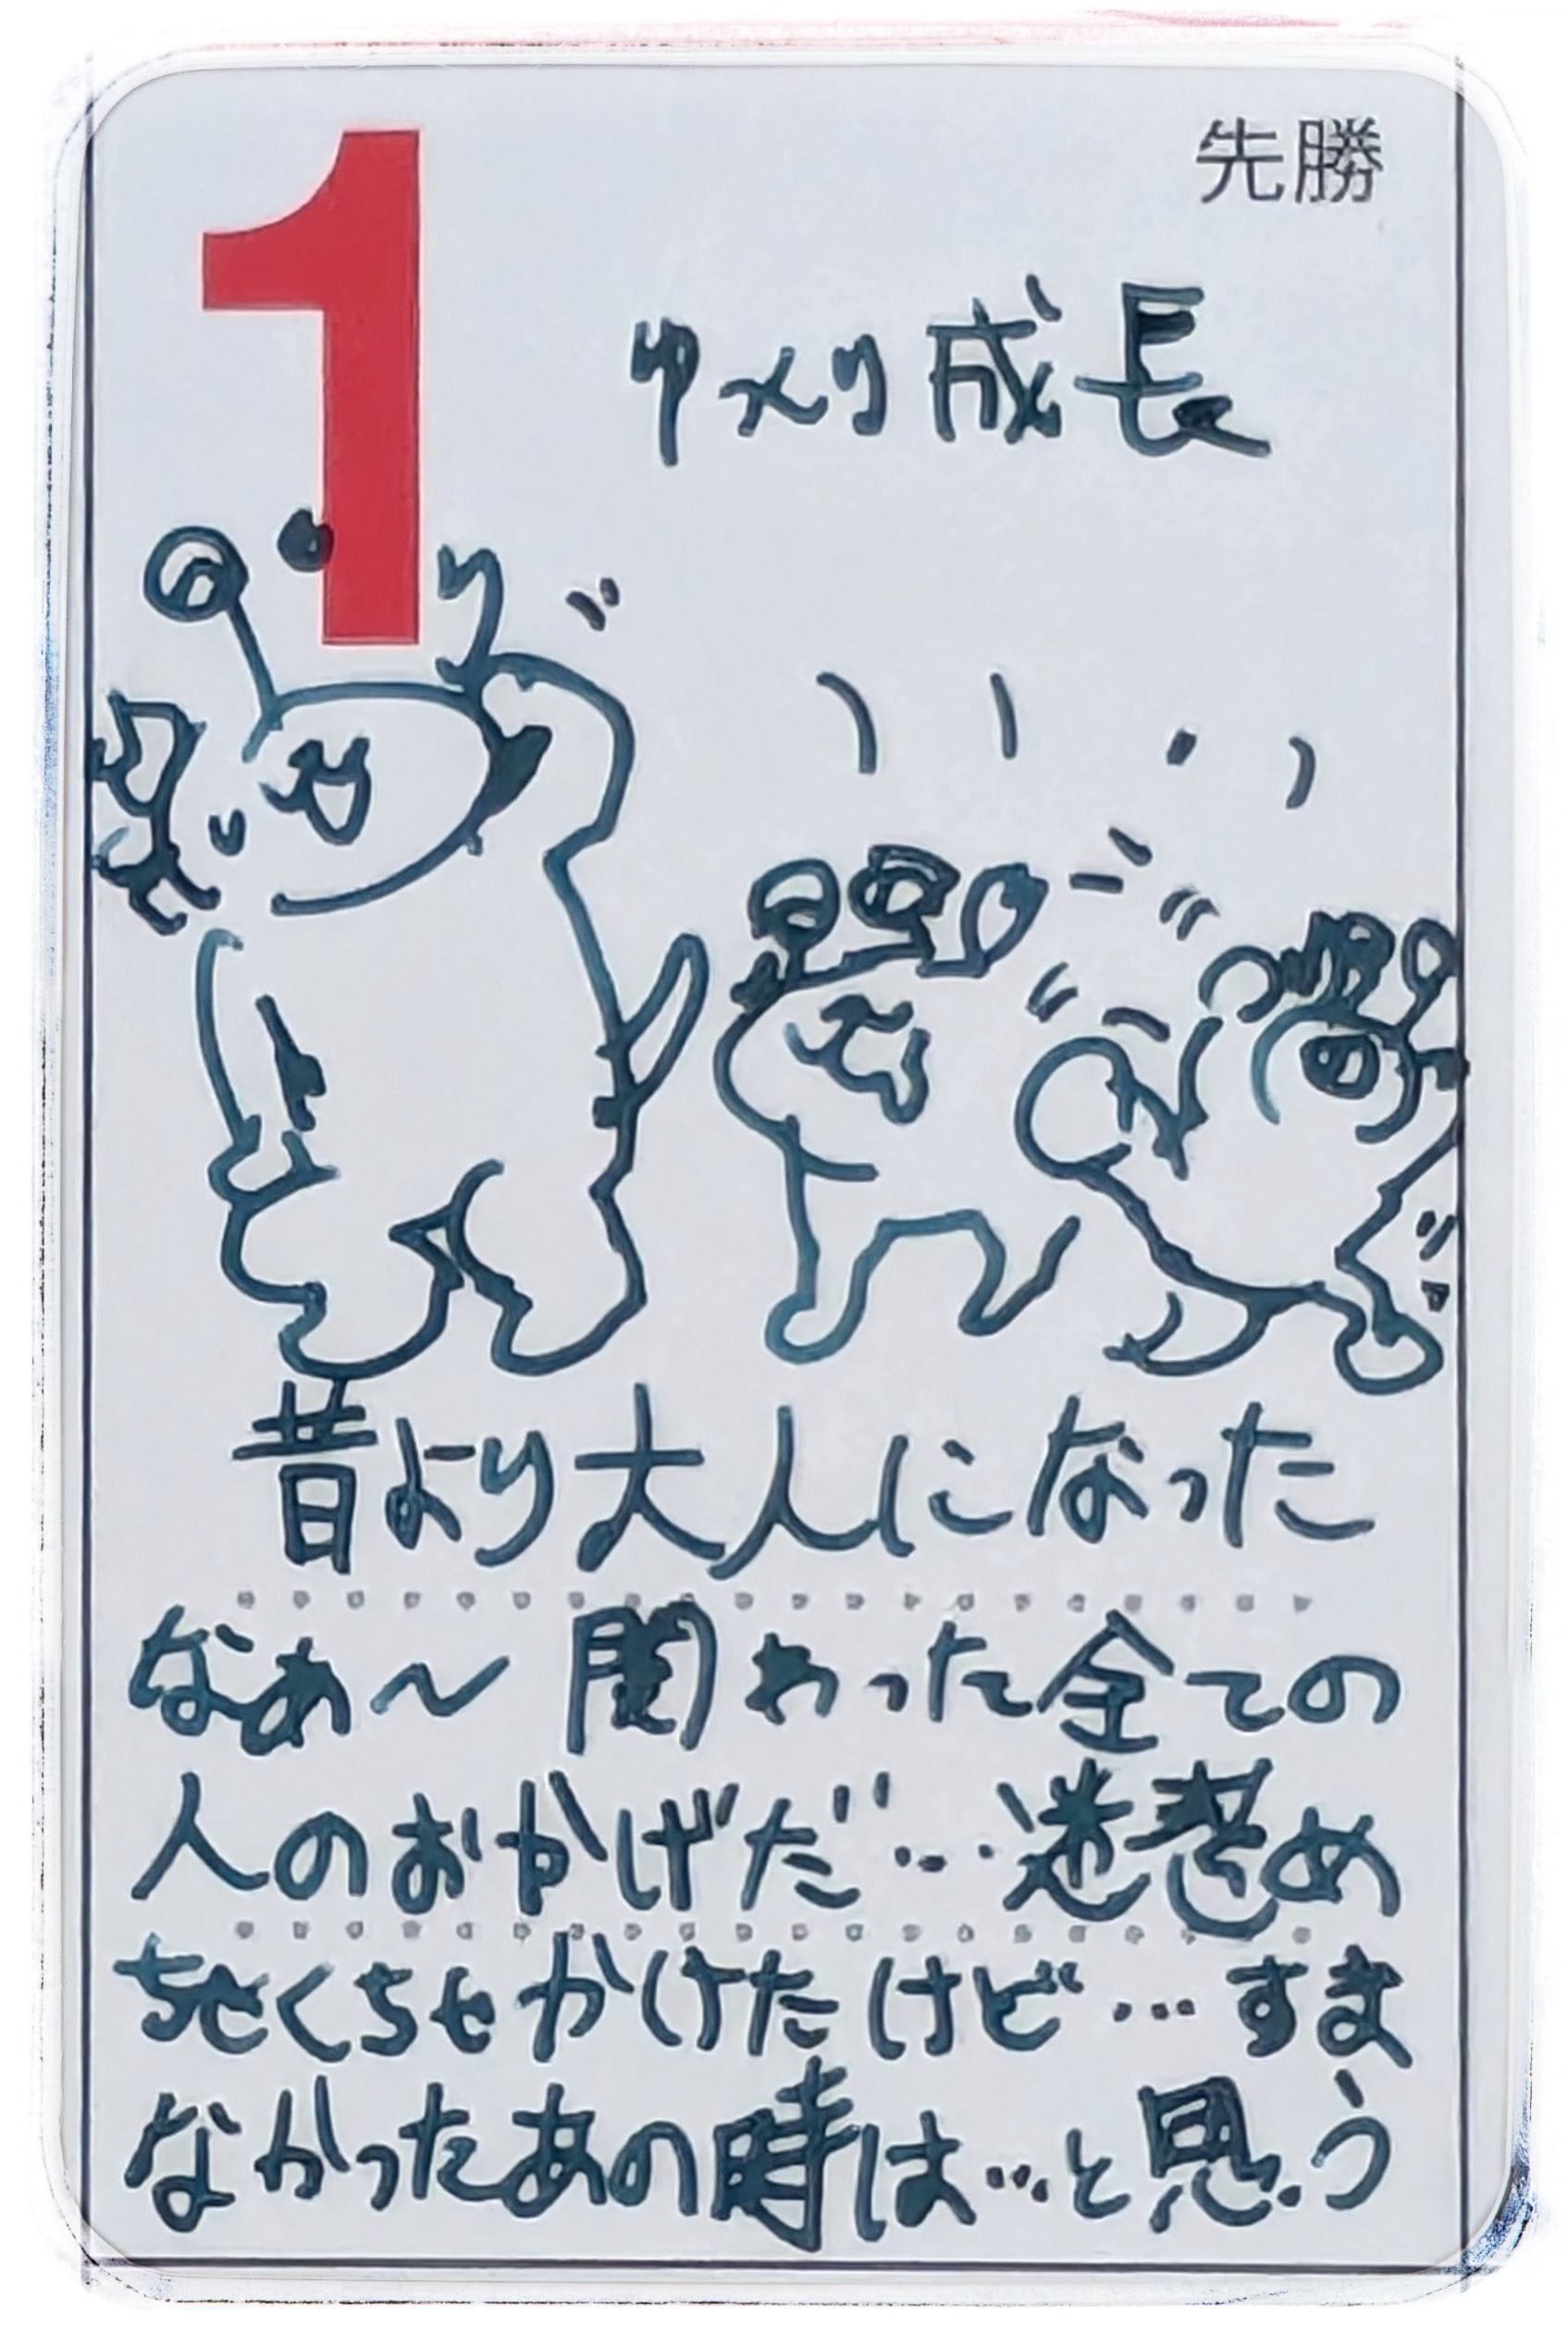 1
先勝
ゆメり成長
昔より大人になった
なぁ〜 関わった全ての
人のおかげだ…迷惑め
ちゃくちゃかけたけど…すま
なかったあの時は…と思う